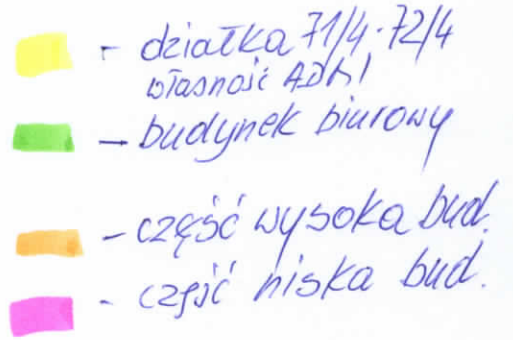 - działka 71/4 · 72/4
własność ADM
- budynek biurowy
- część wysoka bud.
- część niska bud.